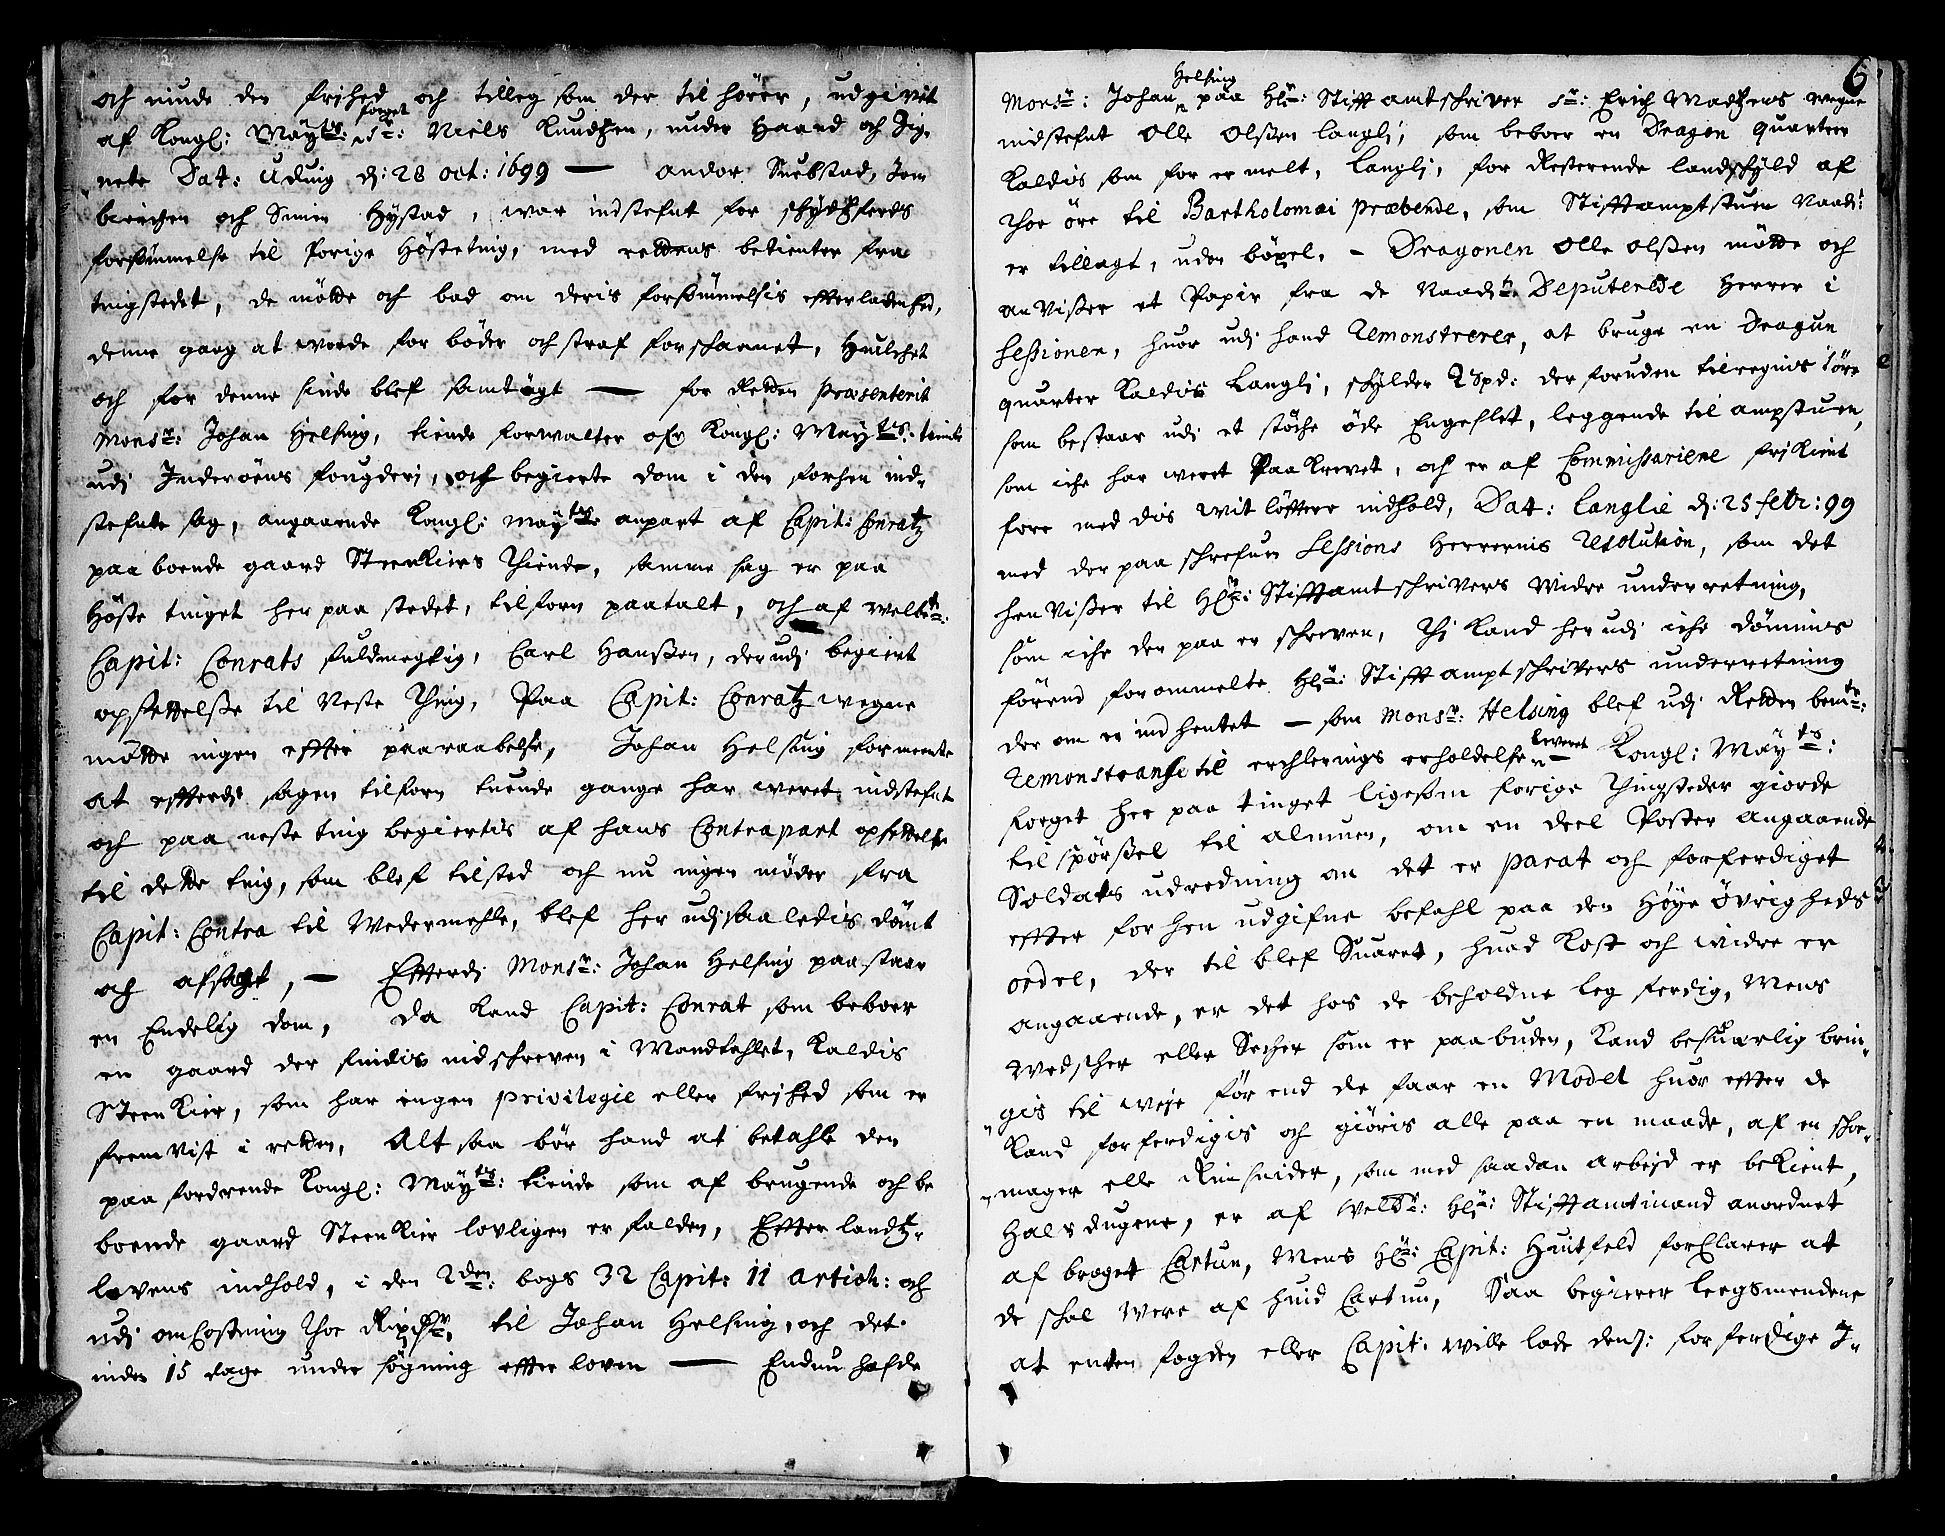 och niude den frihed och tilleg som der til hörer, udgivet
af Kongl: Mayts: foget Sr: Niels Knudsen, under Haand och Zig-
nete Dat: Udvug d: 28 oct: 1699 — Andor Snebstad, Jon
birichen och Simen Hystad, war indstefnt for skydtzferds
forsömmelse til forige Hösteting, med rettens betienter fra
tingstedet, de mötte och bad om deris forsömmelsis efterladenhed,
denne gang at worde for böder och straf forskaanet, Huilchet
och for denne sinde blef samtögt — for Retten præsenterit
Monsr: Johan Helsing, tiende forwalter ofr Kongl: Mayts: tiende
udj Inderöens fougderi, och begierte dom i den forhen ind-
stefnte sag, angaaende Kongl: Mayts: anpart af Capit: Conratz
paa boende gaard Steenkiers Thiende, samme sag er paa
Höste tinget her paa stedet, tilforn paatalt, och af Welbte:
Capit: Conrats fuldmegtig, Carl Hanssen, der udj begiert
opsettelsse til Neste Thing, Paa Capit: Conratz wegne
mötte ingen effter paaraabelse, Johan Helsing formeente
at effterdj sagen tilforn tuende gange har weret indstefnt
och paa neste ting begiertis af hans Contrapart opsettelse
til dette ting, som blef tilsted och nu ingen möder fra
Capit: Contra til Wedermehle, blef her udj saaledis dömt
och afsagt, — Efterdj Monsr: Johan Helsing paastaar
en Endelig dom, da kand Capit: Conrat som beboer
en gaard der findis indschreven i Mandtahlet, Kaldis
Steenkier, som har ingen privilegie eller frihed som er
frem vist i retten, Alt saa bör hand at betahle den
paa fordrende Kongl: Mayts: tiende som af brugende och be
boende gaard Steenkier lovligen er falden, Effter landtz-
lovens indhold, i den 2den: bogs 32 Capit: 11 Artich: och
udj omkostning thoe Rixdr, til Johan Helsing, och det
inden 15 dage under sögning effter loven — Endnu hafde
6
Monsr: Johan Helsing paa Hr: Stifftamtschriver Sr: Erich Madsens wegne
indstefnt Olle Olssen Langlj, som beboer en Dragon quarteer
Kaldis som for er melt, Langlj, for Resterende landskyld af
thoe öre til Bartholomæi præbende, som Stifftamptstuen Naadt:
er tillagt, uden böxel, - Dragonen Olle Olssen mötte och
anvisser et Papir fra de Naadt: Deputerede Herrer i
Sessionen, huor udj hand Remonstrerer, at bruge en Dragun
quarter Kaldis Langlj, skylder 2 spd: der foruden tilregnis 1 öre
som bestaar udj et støche øde Engeslet, leggende til ampstuen,
som iche har weret Paakrevet, och er af Commissariene frikient
fore med dis witløfftere indhold, Dat: Langlie d: 25 febr: 99
med der paa schrefuen Sessions Herrernis Resolution, som det
henvisser til Hr: Stifftamtschrivers widre underretning,
som iche der paa er schreven, Thj kand herudj iche dömmis
förend forommelte Hr: Stifftamptschrivers underretning
der om er ind hentet — som Monsr: Helsing blef udj Retten bemte:
Remonstransi til erchlerings erholdelse leveret — Kongl: Mayts:
foeget her paa tinget ligesom forige Thingsteder giorde
tilspörssel til Almuen, om en deel Poster angaaende
Soldats udredning om det er parat och forferdiget
effter for hen udgifne befahl paa den Høye øvrigheds
ordre, der til blef Suaret, huad Kost och widre er
angaaende, er det hos de beholdne leg ferdig, Mens
Wedscher eller Secher som er paabuden, kand besuærlig brin-
gis til weje för end de faar en Model huor effter de
kand forferdigis och giöris alle paa en maade, af en skoe-
mager elle Rimsnider, som med saadan arbejd er bekient,
Halsdugene, er af Welbr: Hr: Stifftamtmand anordnet
af broget Cartun, Mens Hr: Capit: Huitfeld forklarer at
de skal were af huid Cartun, Saa begierer leegsmendene
at enten fogden eller Capit: wille lade dem: forferdige J-